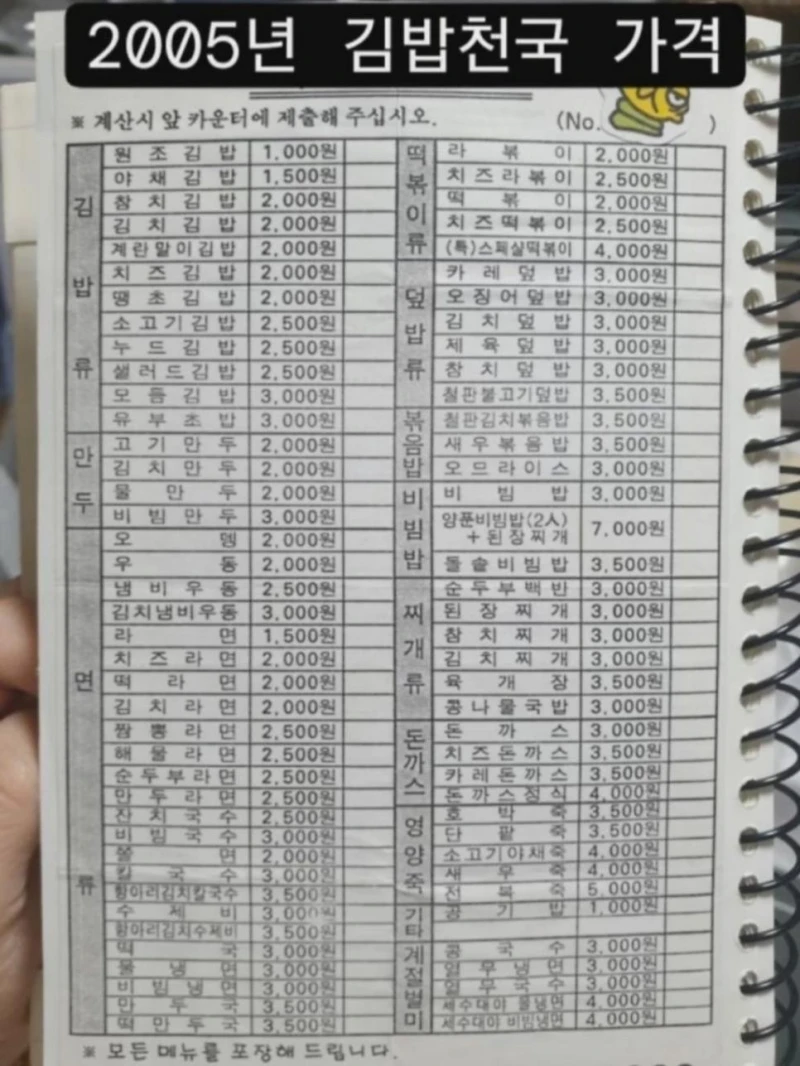 2005년 김밥천국 가격
※ 계산시 앞 카운터에 제출해 주십시오. (No. )
김밥류
원조김밥 1,000원
야채김밥 1,500원
참치김밥 2,000원
김치김밥 2,000원
계란말이김밥 2,000원
치즈김밥 2,000원
땡초김밥 2,000원
소고기김밥 2,500원
누드김밥 2,500원
샐러드김밥 2,500원
모듬김밥 3,000원
유부초밥 3,000원
만두
고기만두 2,000원
김치만두 2,000원
물만두 2,000원
비빔만두 3,000원
면류
오뎅 2,000원
우동 2,000원
냄비우동 2,500원
김치냄비우동 3,000원
라면 1,500원
치즈라면 2,000원
떡라면 2,000원
김치라면 2,000원
짬뽕라면 2,500원
해물라면 2,500원
순두부라면 2,500원
만두라면 2,500원
잔치국수 2,500원
비빔국수 3,000원
쫄면 2,000원
칼국수 3,000원
항아리김치칼국수 3,500원
수제비 3,000원
항아리김치수제비 3,500원
떡국 3,000원
물냉면 3,000원
비빔냉면 3,000원
만두국 3,500원
떡만두국 3,500원
떡볶이류
라볶이 2,000원
치즈라볶이 2,500원
떡볶이 2,000원
치즈떡볶이 2,500원
(특)스페셜떡볶이 4,000원
덮밥류
카레덮밥 3,000원
오징어덮밥 3,000원
김치덮밥 3,000원
제육덮밥 3,000원
참치덮밥 3,000원
철판불고기덮밥 3,500원
볶음밥
철판김치볶음밥 3,500원
새우볶음밥 3,500원
오므라이스 3,000원
비빔밥
비빔밥 3,000원
양푼비빔밥(2人)
+된장찌개 7,000원
돌솥비빔밥 3,500원
찌개류
순두부백반 3,000원
된장찌개 3,000원
참치찌개 3,000원
김치찌개 3,000원
육개장 3,500원
콩나물국밥 3,000원
돈까스
돈까스 3,000원
치즈돈까스 3,500원
카레돈까스 3,500원
돈까스정식 4,000원
영양죽
호박죽 3,500원
단팥죽 3,500원
소고기야채죽 4,000원
새우죽 4,000원
전복죽 5,000원
기타
공기밥 1,000원
계절별미
콩국수 3,000원
열무냉면 3,000원
열무국수 3,000원
세수대야 물냉면 4,000원
세수대야 비빔냉면 4,000원
※ 모든 메뉴를 포장해 드립니다.